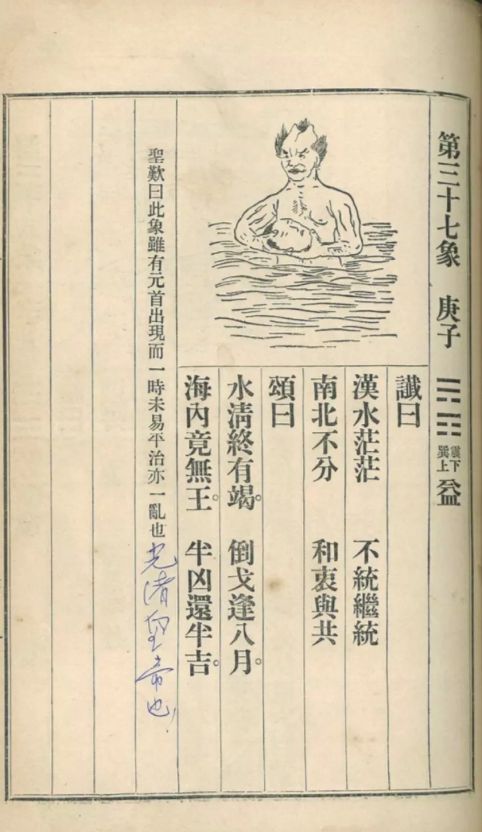 第三十七象 庚子 震下巽上 益
讖曰
漢水茫茫 不統繼統
南北不分 和衷與共
頌曰
水清終有竭。 倒戈逢八月。
海內竟無王。 半凶還半吉。
聖歎曰此象雖有元首出現而一時未易平治亦一亂也